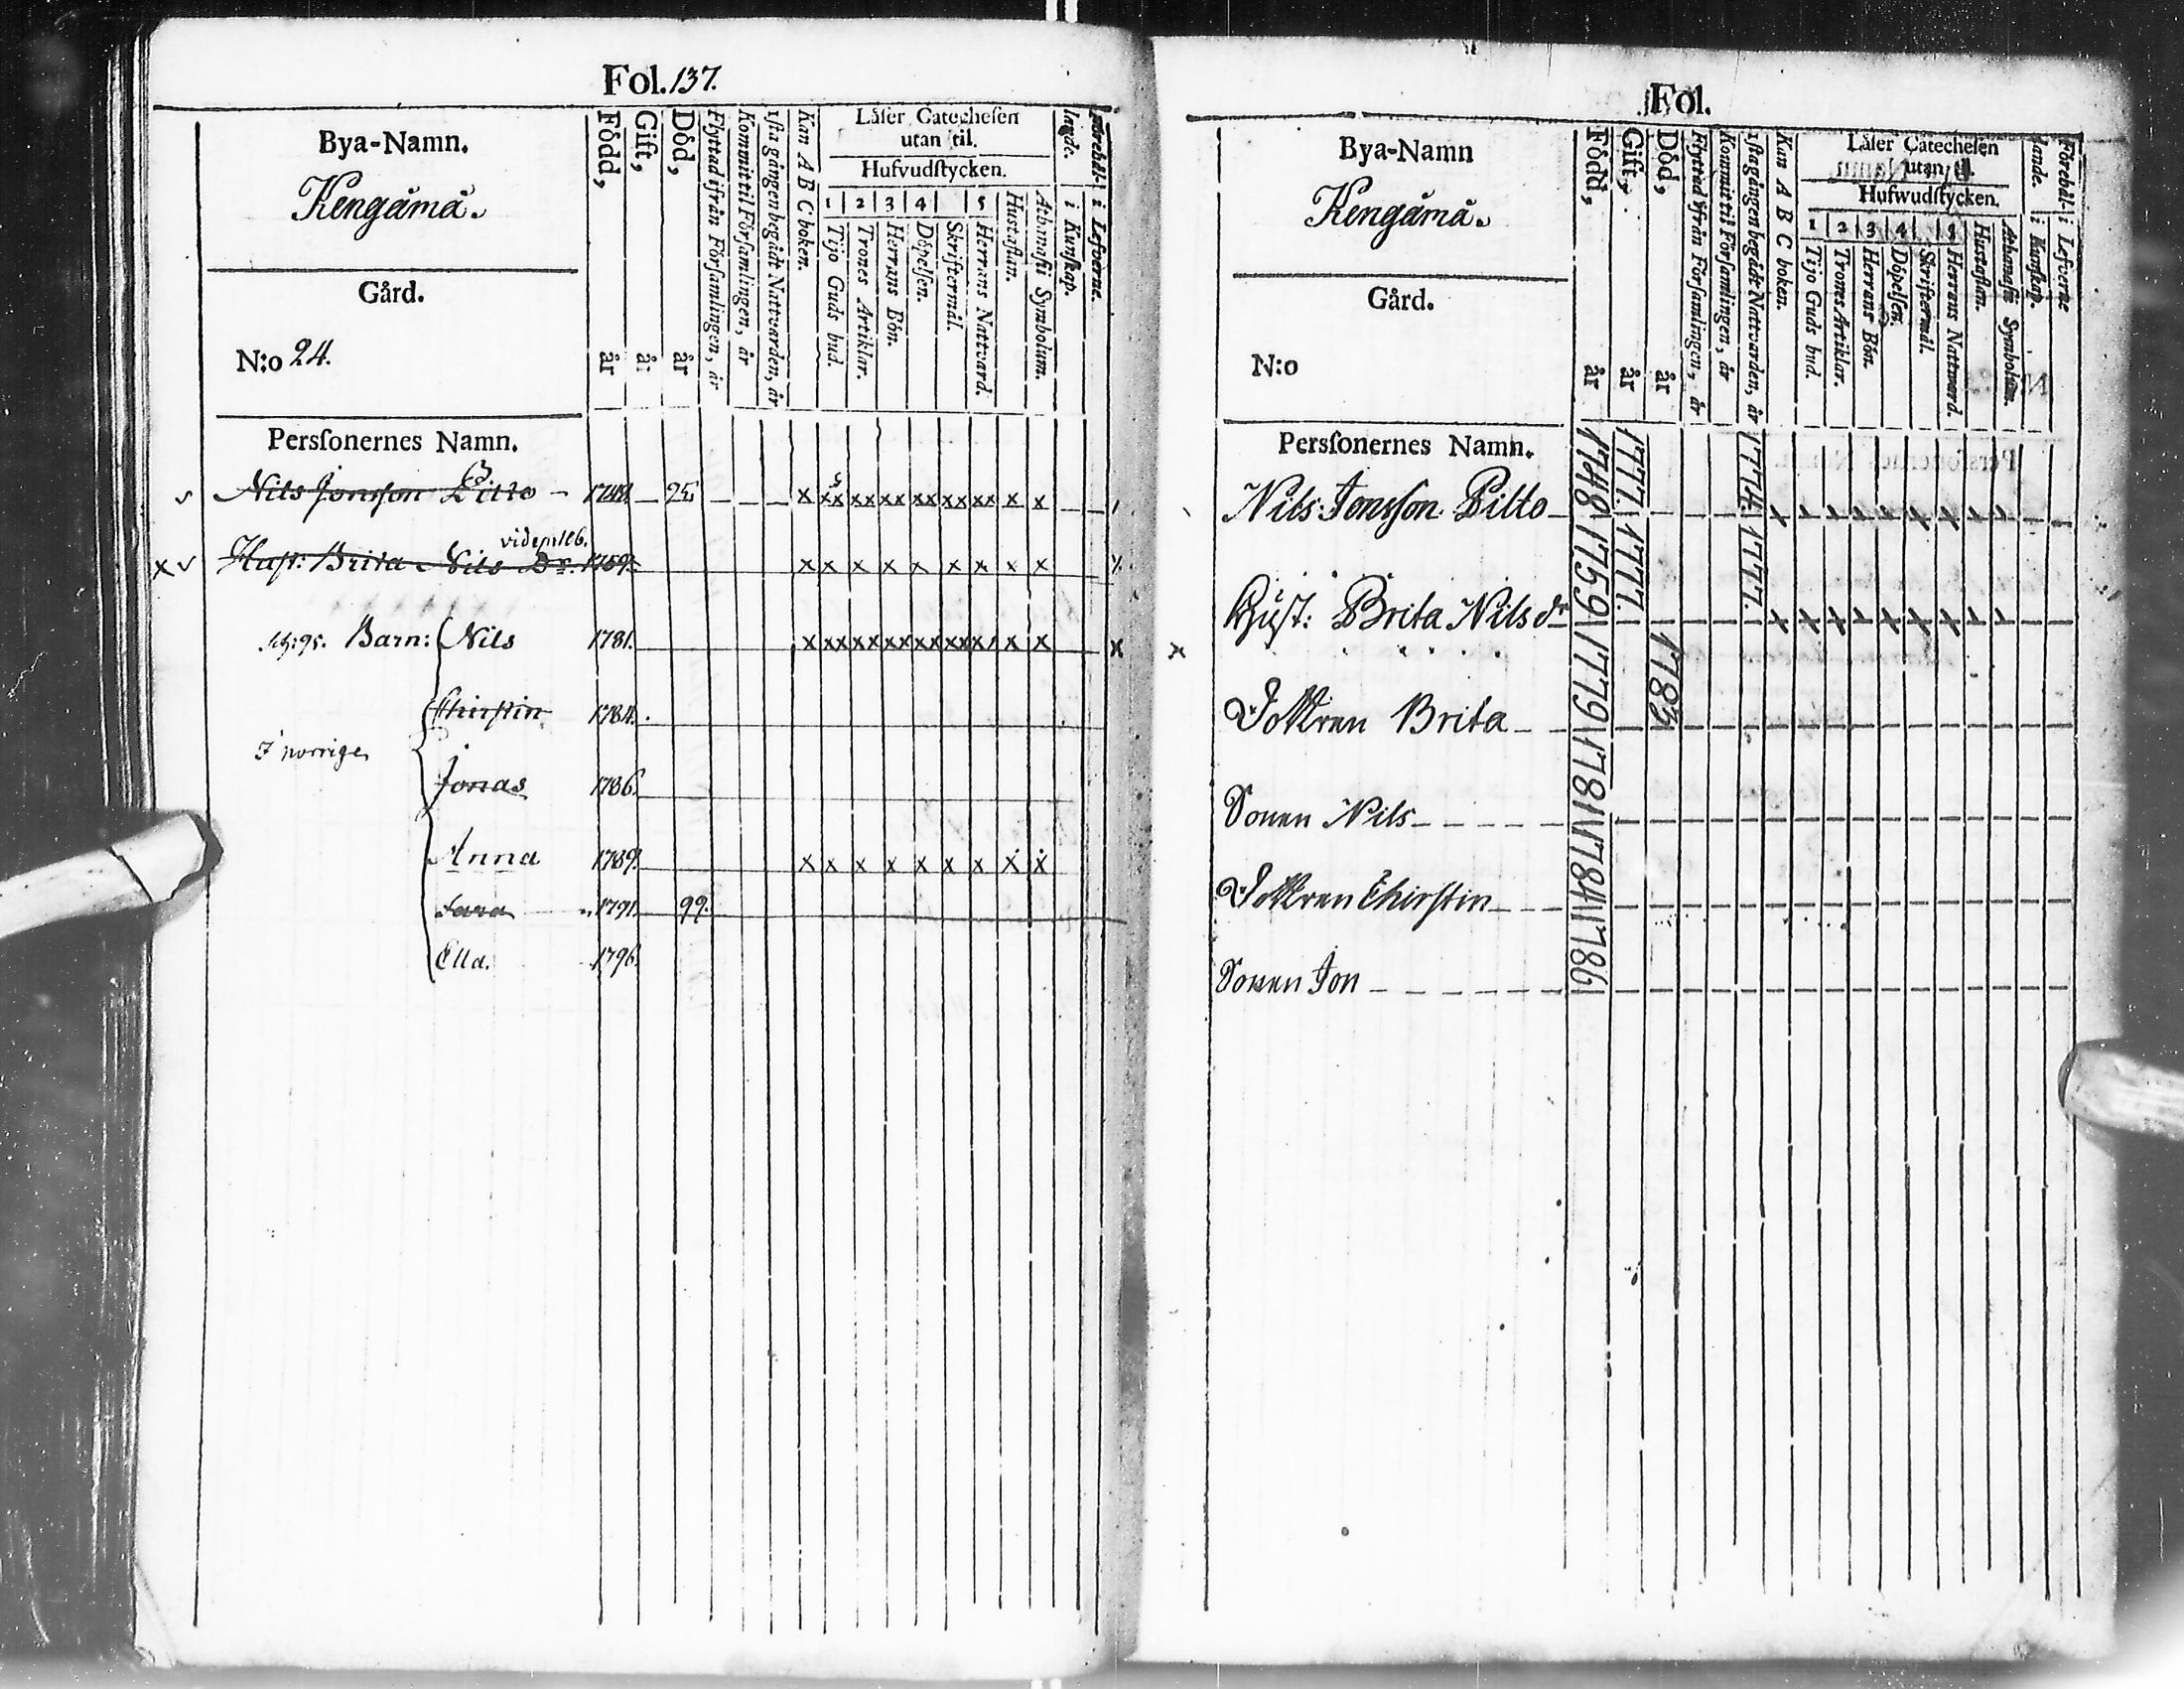 Fol. 137.
Bya-Namn.
Kengämä.
Gård.
N:o 24.
Född, år
Gift, år
Död, år
Flyttad ifrån Församlingen, år
Kommit til Församlingen, år
1sta gången begådt Nattvarden, år
Kan A B C boken.
Låſer Catecheſen
utan til.
Hufvudſtycken.
1 2 3 4 5
Tijo Guds bud.
Trones Artiklar.
Herrans Bön.
Döpelſen.
Skriftermål.
Herrans Nattvard.
Huſtaflan.
Athanaſii Symbolum.
lande. i Kunſkap.
Förehål- i Lefverne.
Perſonernes Namn.
Nils Jonsson Pilto – 1748. 25. x xx xx xx xx xx xx x x
vide pag 186.
Hust: Brita Nils Dr. 1759. x x x x x x x x x
Barn: Nils 1781. x xx xx xx xx xx xx x x
Chirstin 1784.
I norrige
Jonas 1786.
Anna 1789. x x x x x x x x x
Sara 1791. 99.
Ella. 1796.
Fol.
Bya-Namn
Kengämä.
Gård.
N:o
Född, år
Gift, år
Död, år
Flyttad ifrån Församlingen, år
Kommit til Församlingen, år
1sta gången begådt Nattvarden, år
Kan A B C boken.
Låſer Catecheſen
utan til.
Hufwudſtycken.
1 2 3 4 5
Tijo Guds bud.
Trones Artiklar.
Herrans Bön.
Döpelſen.
Skriftermål.
Herrans Natward.
Huſtaflan.
Athanaſii Symbolum.
lande. i Kunſkap.
Förehål- i Lefverne
Perſonernes Namn.
Nils Jonsson Pilto 1748 1777. 1774.
Hust: Brita Nils dr 1759 1777. 1777.
Dottren Brita 1779 1783
Sonen Nils 1781
Dottren Chirstin 1784
Sonen Jon 1786